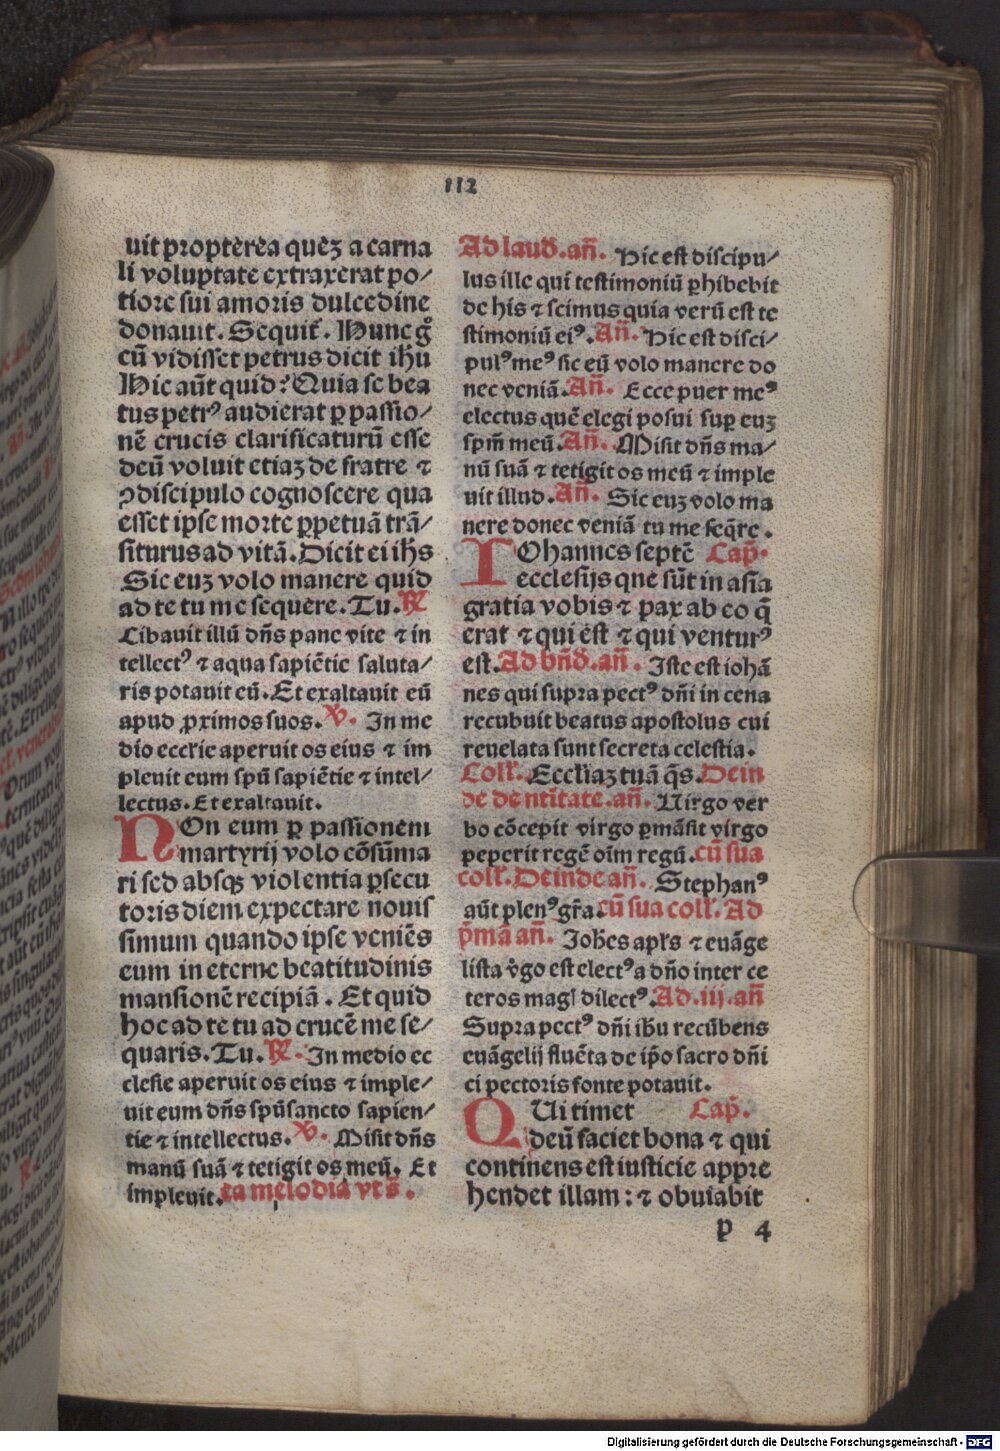 112
uit propterea quēz a carna
li voluptate extraxerat po/
tiore sui amoris dulcedine
donauit. Sequit᷑. Hunc gͦ
cū vidisset petrus dicit ihu
Hic aūt quid? Quia se bea
tus petrꝰ audierat ꝑ passio/
nē crucis clarificaturū esse
deū voluit etiaꝫ de fratre ⁊
ꝯdiscipulo cognoscere qua
esset ipse morte ꝑpetuā trā/
siturus ad vitā. Dicit ei ihs̄
Sic euꝫ volo manere quid
ad te tu me sequere. Tu. ℟
Cibauit illū dn̄s pane vite ⁊ in
tellectꝰ ⁊ aqua sapiētie saluta/
ris potauit eū. Et exaltauit eū
apud ꝓximos suos. ℣. In me
dio eccl'ie aperuit os eius ⁊ im
pleuit eum spū sapiētie ⁊ intel/
lectus. Et exaltauit.
NOn eum ꝑ passionem
martyrij volo cōsūma
ri sed absqꝫ violentia ꝑsecu
toris diem expectare nouis
simum quando ipse veniēs
eum in eterne beatitudinis
mansionē recipiā. Et quid
hoc ad te tu ad crucē me se/
quaris. Tu. ℟. In medio ec
clesie aperuit os eius ⁊ imple/
uit eum dn̄s spū sancto sapien/
tie ⁊ intellectus. ℣. Misit dn̄s
manū suā ⁊ tetigit os meū. Et
impleuit. ta melodia vts̄.
Ad laud. an̄. Hic est discipu/
lus ille qui testimoniū ꝑhibebit
de his ⁊ scimus quia verū est te
stimoniū eiꝰ. An̄. Hic est disci/
pulꝰ meꝰ sic eū volo manere do
nec veniā. An̄. Ecce puer meꝰ
electus quē elegi posui suꝑ euꝫ
spm̄ meū. An̄. Misit dn̄s ma/
nū suā ⁊ tetigit os meū ⁊ imple
uit illud. An̄. Sic euꝫ volo ma
nere donec veniā tu me seq̄re.
IOhannes septē Cap̄.
ecclesijs que sūt in asia
gratia vobis ⁊ pax ab eo q̄
erat ⁊ qui est ⁊ qui venturꝰ
est. Ad bn̄d. an̄. Iste est iohā
nes qui supra pectꝰ dn̄i in cena
recubuit beatus apostolus cui
reuelata sunt secreta celestia.
Coll'. Eccl'iaꝫ tuā q̄s. Dein
de de ntītate. an̄. Virgo ver
bo cōcepit virgo ꝑmāsit virgo
peperit regē oīm regū. cū sua
coll'. Deinde an̄. Stephanꝰ
aūt plenꝰ gr̄a. cū sua coll'. Ad
p̄mā an̄. Joh̄es apl's ⁊ euāge
lista v̓go est electꝰ a dn̄o inter ce
teros magl dilectꝰ. Ad .iij. an̄
Supra pectꝰ dn̄i ihū recūbens
euāgelij fluēta de ip̄o sacro dn̄i
ci pectoris fonte potauit.
QUi timet Cap̄.
deū faciet bona ⁊ qui
continens est iusticie appre
hendet illam: ⁊ obuiabit
p 4
Digitalisierung gefördert durch die Deutsche Forschungsgemeinschaft - DFG